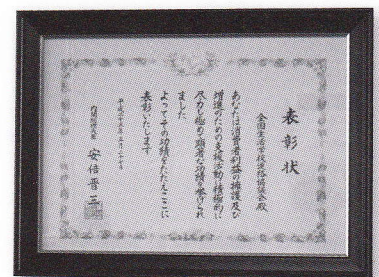 表彰状
全国生活学校連絡協議会殿
あなたは消費者利益の擁護及び
増進のための支援活動に積極的に
尽力し極めて顕著な功績を挙げられ
ました
よってその功績をたたえここに
表彰いたします
平成二十五年五月二十七日
内閣総理大臣
安倍晋三